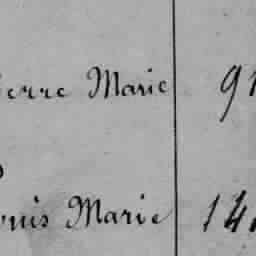 ierre Marie 91
ouis Marie 14